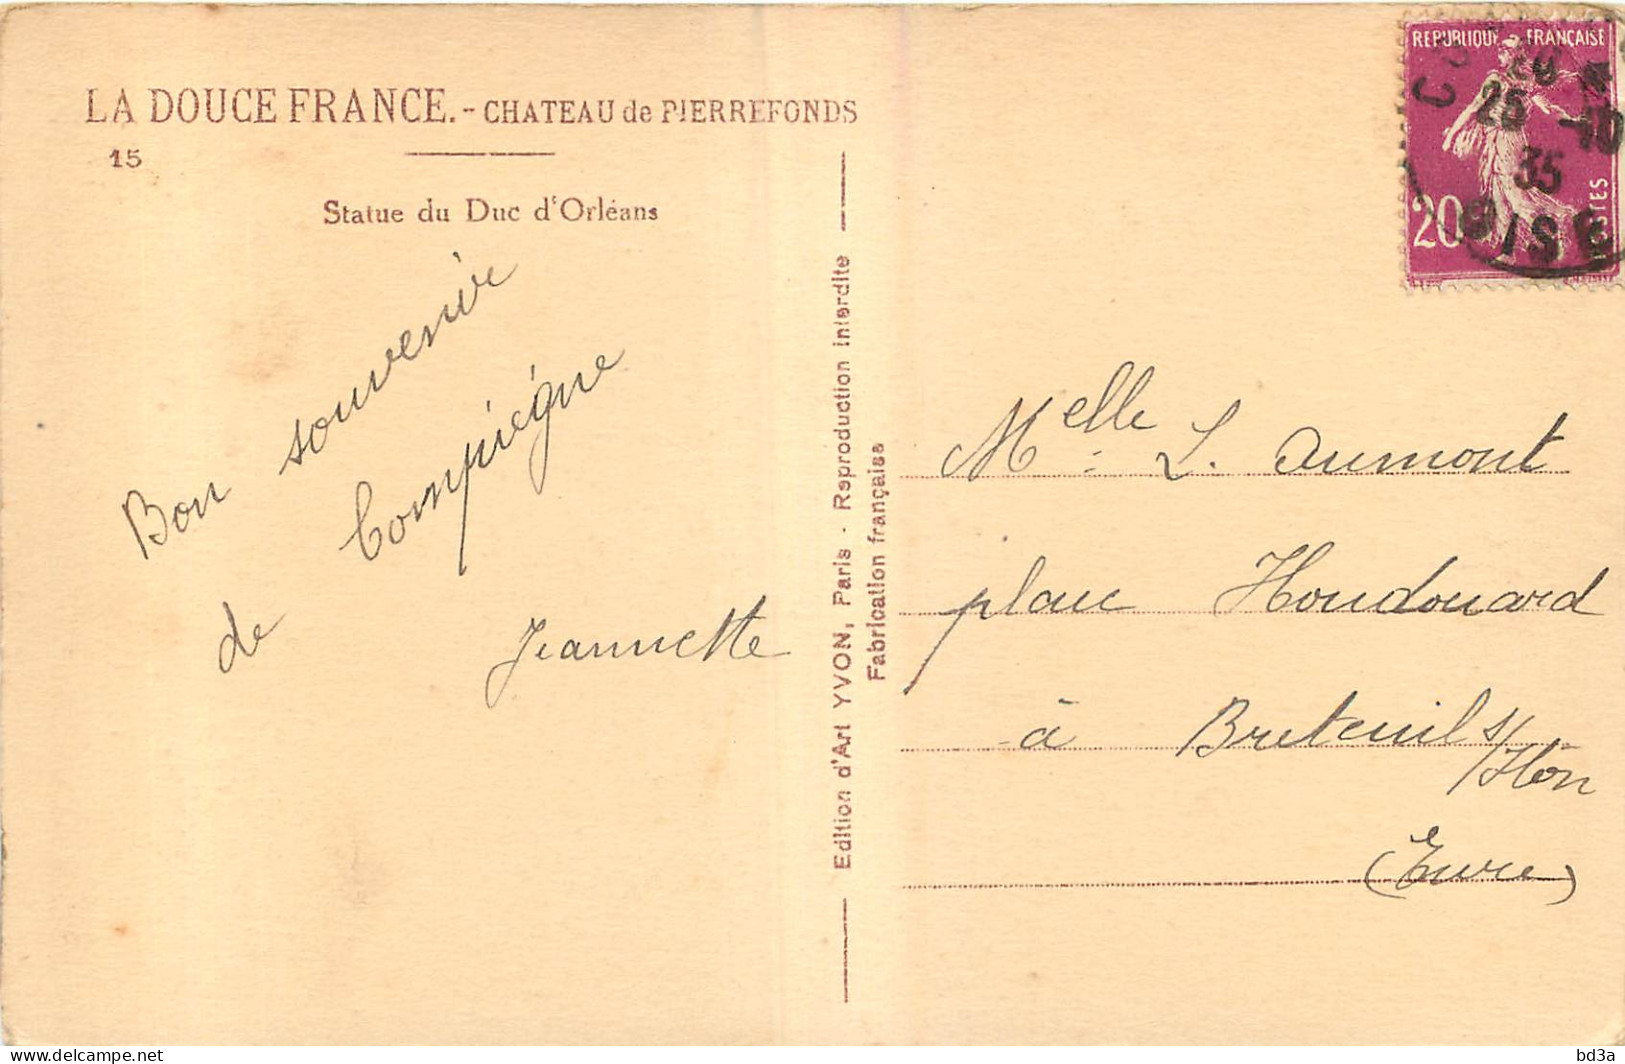 LA DOUCE FRANCE. - CHATEAU de PIERREFONDS
15
Statue du Duc d'Orléans
Bon souvenir
de Compiègne
Jeannette
Edition d'Art YVON, Paris - Reproduction interdite
Fabrication française
REPUBLIQUE FRANÇAISE
20
POSTES
25 -10
35
OISE
Melle L. Aumont
place Houdouard
à Breteuil s/Iton
(Eure)
delcampe.net
bd3a